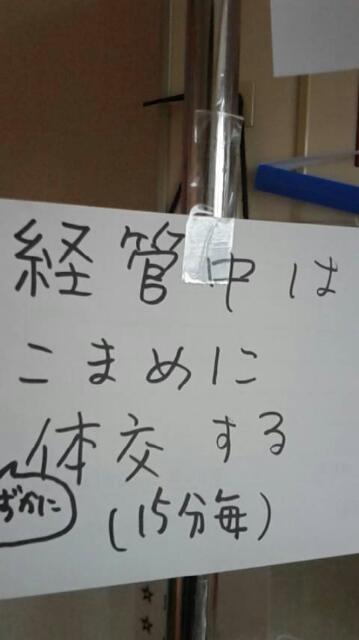 経管中は
こまめに
体交する
(15分毎)
ずかに